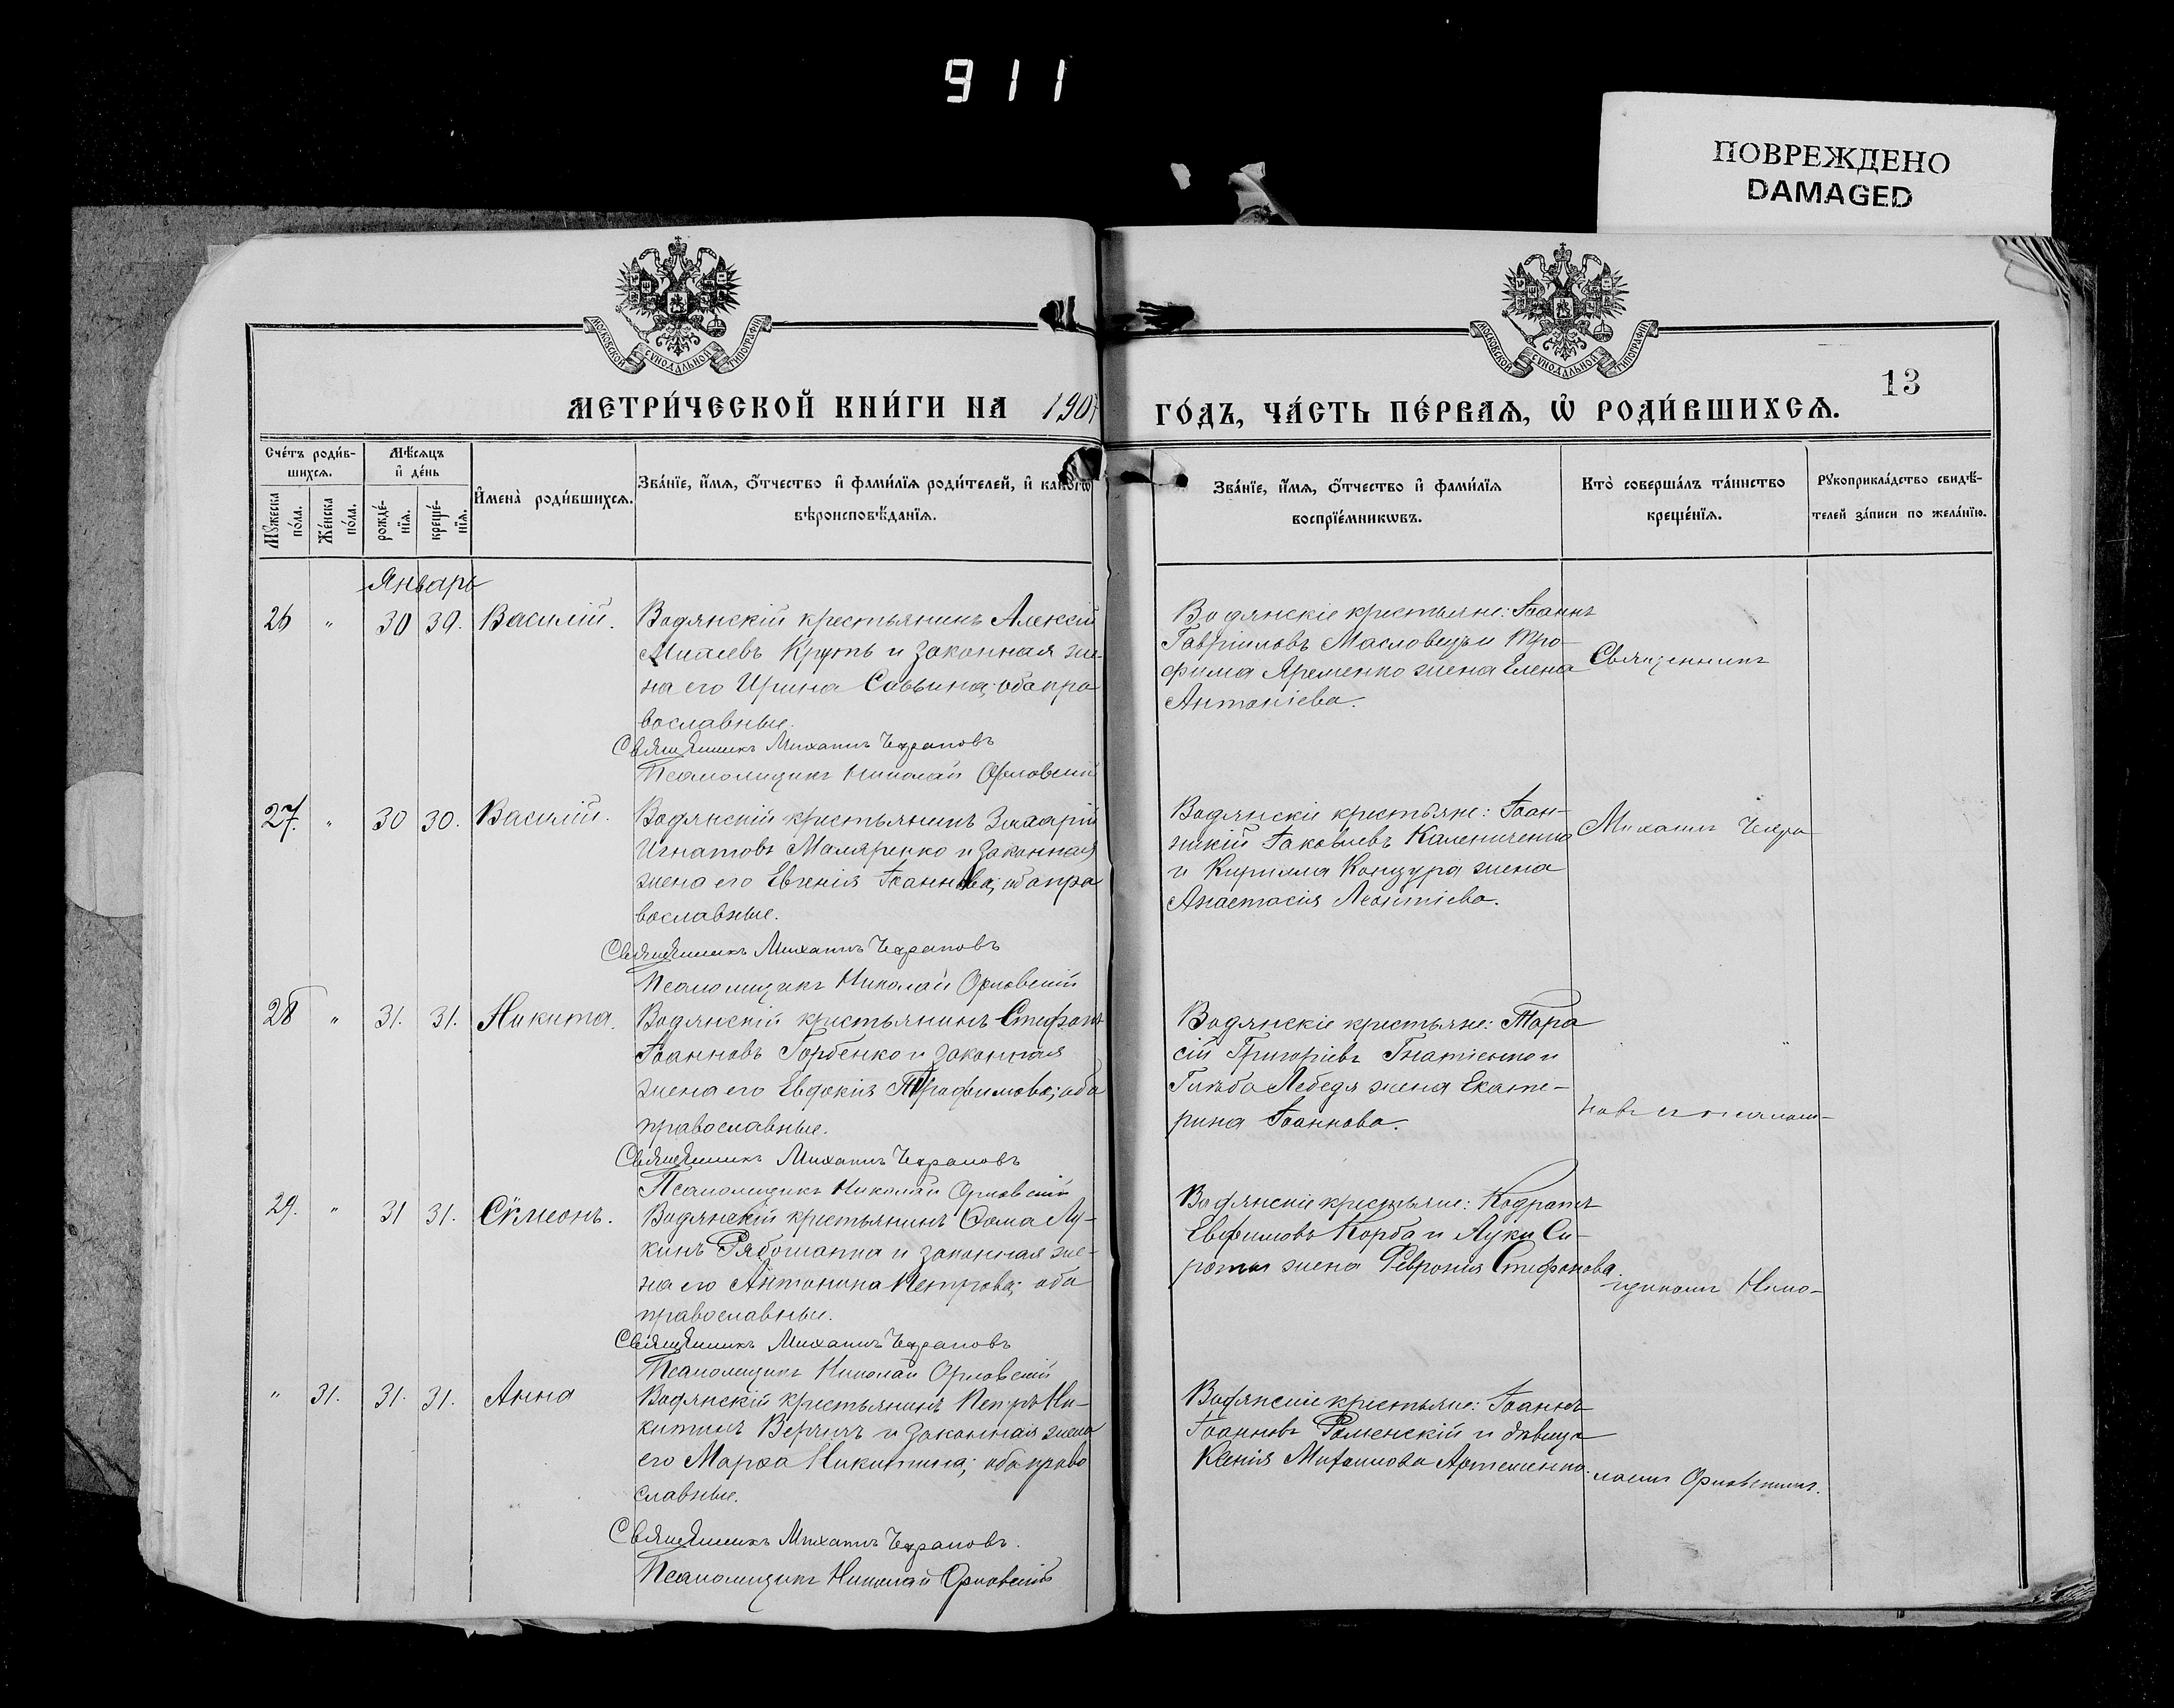 911
ПОВРЕЖДЕНО
DAMAGED
МОСКОВСКОЙ СѴНОДАЛЬНОЙ ТИПОГРАФІИ
МОСКОВСКОЙ СѴНОДАЛЬНОЙ ТИПОГРАФІИ
13
МЕТРИ́ЧЕСКОЙ КНИ́ГИ НА 1907
ГО́ДЪ, ЧА́СТЬ ПЕ́РВАЯ, Ѡ҆ РОДИ́ВШИХСЯ.
Счетъ родив-
шихся.
Мужеска
пола.
Женска
пола.
Мѣсяцъ
и день
рожде-
нія.
креще-
нія.
Имена родившихся.
Званіе, имя, отчество и фамилія родителей, и какогѡ
вѣроисповѣданія.
Званіе, имя, отчество и фамилія
воспріемникѡвъ.
Кто совершалъ таинство
крещенія.
Рукоприкладство свидѣ-
телей записи по желанію.
Январь
26 " 30 30. Василій.
Водянскій крестьянинъ Алексій
Круть и законная же-
на его Ирина Саввина; оба пра
вославные.
Священникъ Михаилъ Чехрановъ
Псаломщикъ Николай Орловскій
Водянскіе крестьяне: Іоаннъ
Гавріиловъ Масловецъ и Тро-
фима Яременко жена Елена
Антоніева.
Священникъ
27. " 30 30. Василій.
Водянскій крестьянинъ Захарій
Игнатовъ Маляренко и законная
жена его Евгенія Іоаннова; оба пра
вославные.
Священникъ Михаилъ Чехрановъ
Псаломщикъ Николай Орловскій
Водянскіе крестьяне: Іоан-
никій Іаковлевъ Калениченко
и Кирилла Концура жена
Анастасія Леонтіева.
Михаилъ Чехра
28 " 31. 31. Никита.
Водянскій крестьянинъ Стефанъ
Іоанновъ Горбенко и законная
жена его Евдокія Трофимова; оба
православные.
Священникъ Михаилъ Чехрановъ
Псаломщикъ Николай Орловскій
Водянскіе крестьяне: Тара
сій Григоріевъ Гнатенко и
Глѣба Лебедя жена Екате-
рина Іоаннова.
новъ съ псалом-
29. " 31 31. Сѵмеонъ.
Водянскій крестьянинъ Ѳома Лу-
кинъ Рябошапка и законная же-
на его Антонина Петрова; оба
православные.
Священникъ Михаилъ Чехрановъ
Псаломщикъ Николай Орловскій
Водянскіе крестьяне: Кодратъ
Евфимовъ Корба и Луки Си-
роты жена Февронія Стефанова.
щикомъ Нико-
" 31. 31. 31. Анна
Водянскій крестьянинъ Петръ Ни-
китинъ и законная жена
его Марѳа Никитина; оба право
славные.
Священникъ Михаилъ Чехрановъ.
Псаломщикъ Николай Орловскій
Водянскіе крестьяне: Іоаннъ
Іоанновъ Раменскій и дѣвица
Ксенія Михаилова Артеменко.
лаемъ Орловскимъ.